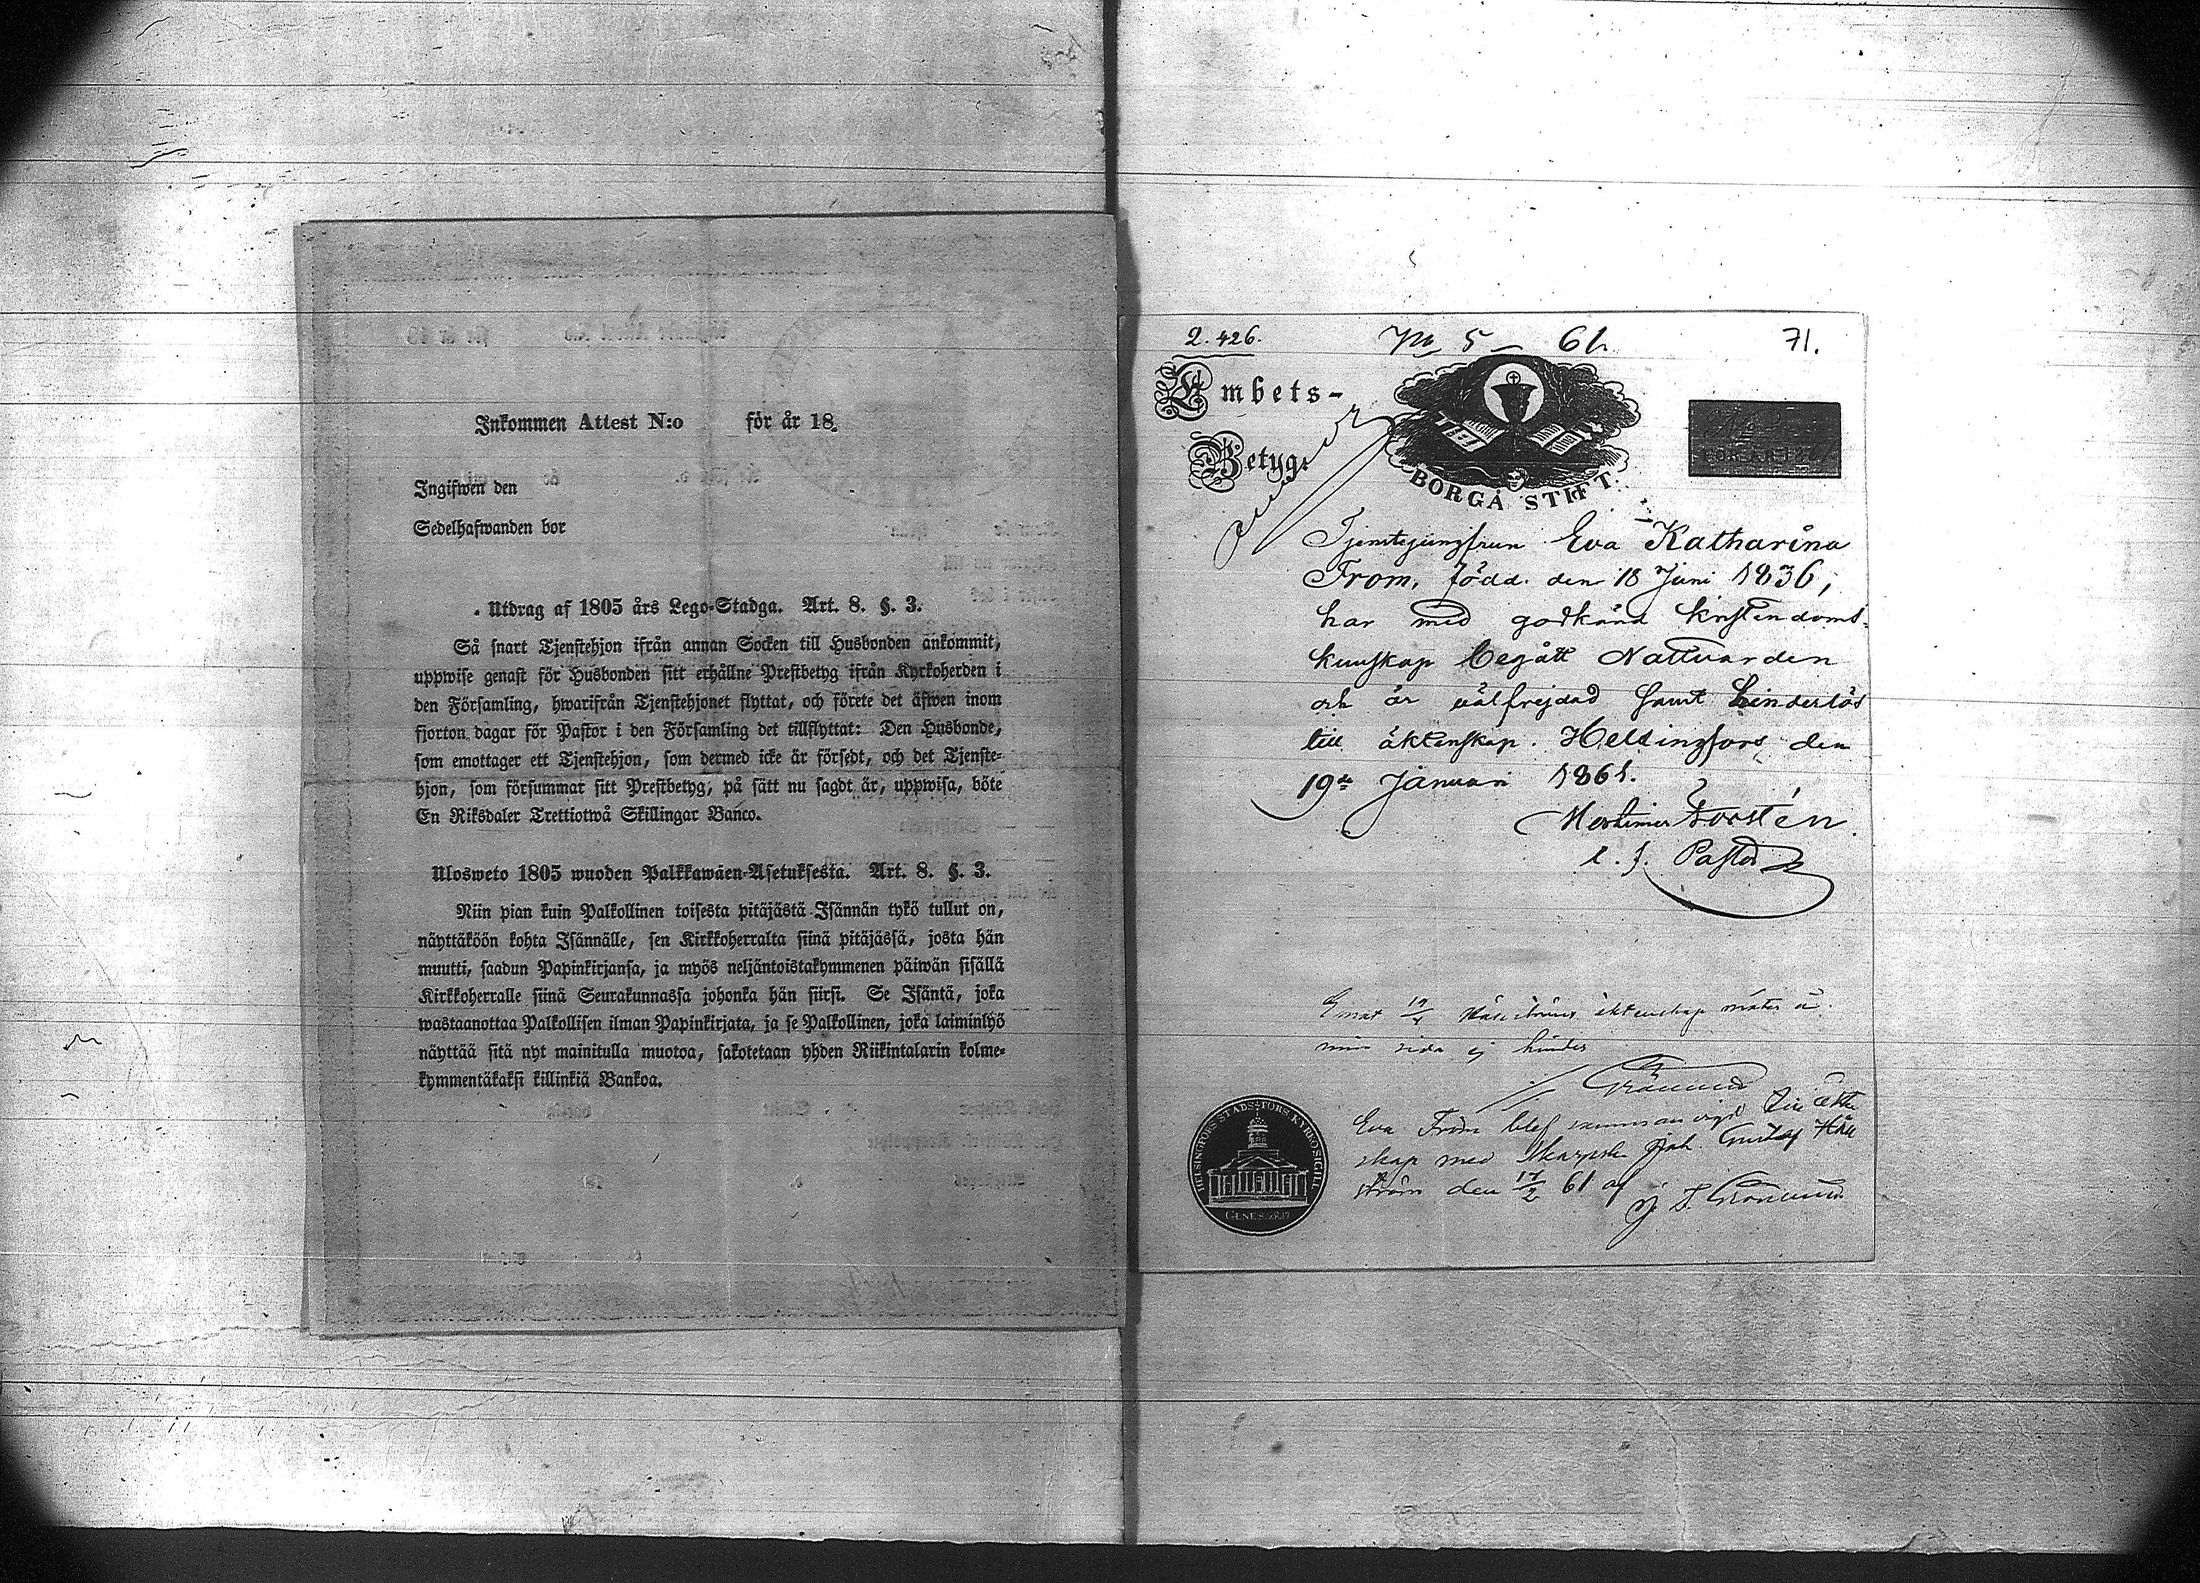 Inkommen Attest N:o för år 18
Ingifwen den
Sedelhafwanden bor
Utdrag af 1805 års Lego-Stadga. Art. 8. §. 3.
Så snart Tjenstehjon ifrån annan Socken till Husbonden ankommit,
uppwise genast för Husbonden sitt erhållne Prestbetyg ifrån Kyrkoherden i
den Församling, hwarifrån Tjenstehjonet flyttat, och förete det äfwen inom
fjorton dagar för Pastor i den Församling det tillflyttat: Den Husbonde,
som emottager ett Tjenstehjon, som dermed icke är försedt, och det Tjenste-
hjon, som försummar sitt Prestbetyg, på sätt nu sagdt är, uppwisa, böte
En Riksdaler Trettiotwå Skillingar Banco.
Ulosweto 1805 wuoden Palkkawäen-Asetuksesta. Art. 8. §. 3.
Niin pian kuin Palkollinen toisesta pitäjästä Isännän tykö tullut on,
näyttäköön kohta Isännälle, sen Kirkkoherralta siinä pitäjässä, josta hän
muutti, saadun Papinkirjansa, ja myös neljäntoistakymmenen päiwän sisällä
Kirkkoherralle siinä Seurakunnassa johonka hän siirsi. Se Isäntä, joka
wastaanottaa Palkollisen ilman Papinkirjata, ja se Palkollinen, joka laiminlyö
näyttää sitä nyt mainitulla muotoa, sakotetaan yhden Riikintalarin kolme-
kymmentäkaksi killinkiä Bankoa.
2.426. No 5 61 71.
Embets-
Betyg.
BORGÅ STIFT.
Tjenstejungfrun Eva Katharina
From, född den 18 Juni 1836,
har med godkänd kristendoms-
kunskap begått Nattvarden
och är välfrejdad samt hinderlös
till äktenskap. Helsingfors den
19de Januari 1861.
Forstén.
Pastor
äktenskap möter å
min sida ej hinder
Grönlund
HELSINGFORS STADS FÖRS. KYRKOSIGILL
Eva From blef sammanvigd till äkten
skap med Gustaf Häll
ström den 17/2 61 af